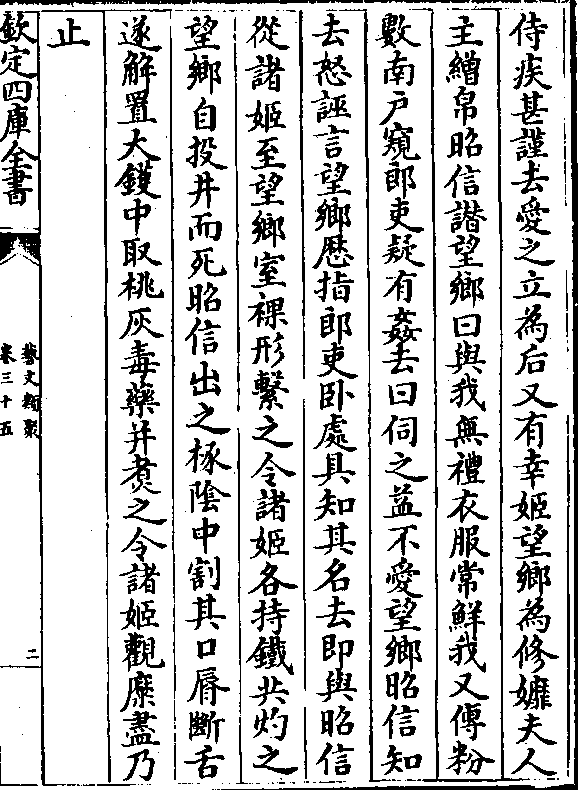 侍疾甚謹去愛之立為后又有幸姬望鄉為修嫲夫人
主繒帛昭信譖望鄉曰與我無禮衣服常鮮我又傅粉
數南户窺郎吏疑有姦去曰伺之益不愛望鄉昭信知
去怒誣言望鄉歴指郎吏卧處具知其名去即與昭信
從諸姬至望鄉室裸形繫之令諸姬各持鐵共灼之
望鄉自投井而死昭信出之椓陰中割其口脣斷舌
遂解置大鑊中取桃灰毒藥并煮之令諸姬觀糜盡乃
止
欽定四庫全書
藝文類聚
卷三十五
二